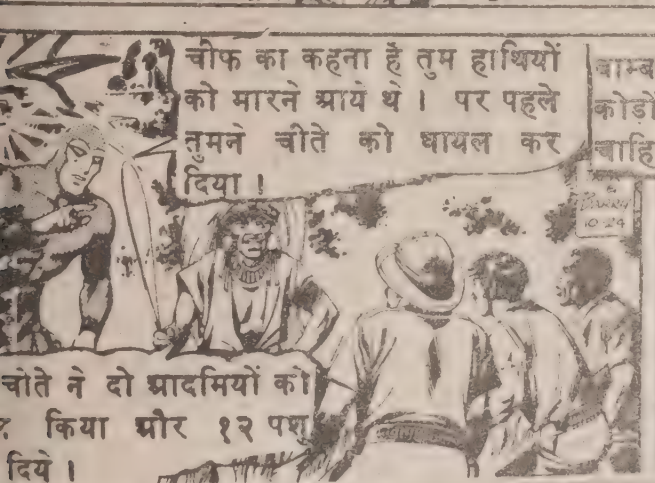 चीफ का कहना है तुम हाथियों
को मारने आये थे । पर पहले
तुमने चीते को घायल कर
दिया ।
बाम्ब
कोड़ों
चाहि
BARRY
10-24
चीते ने दो आदमियों को
किया और १२ पशु
दिये ।